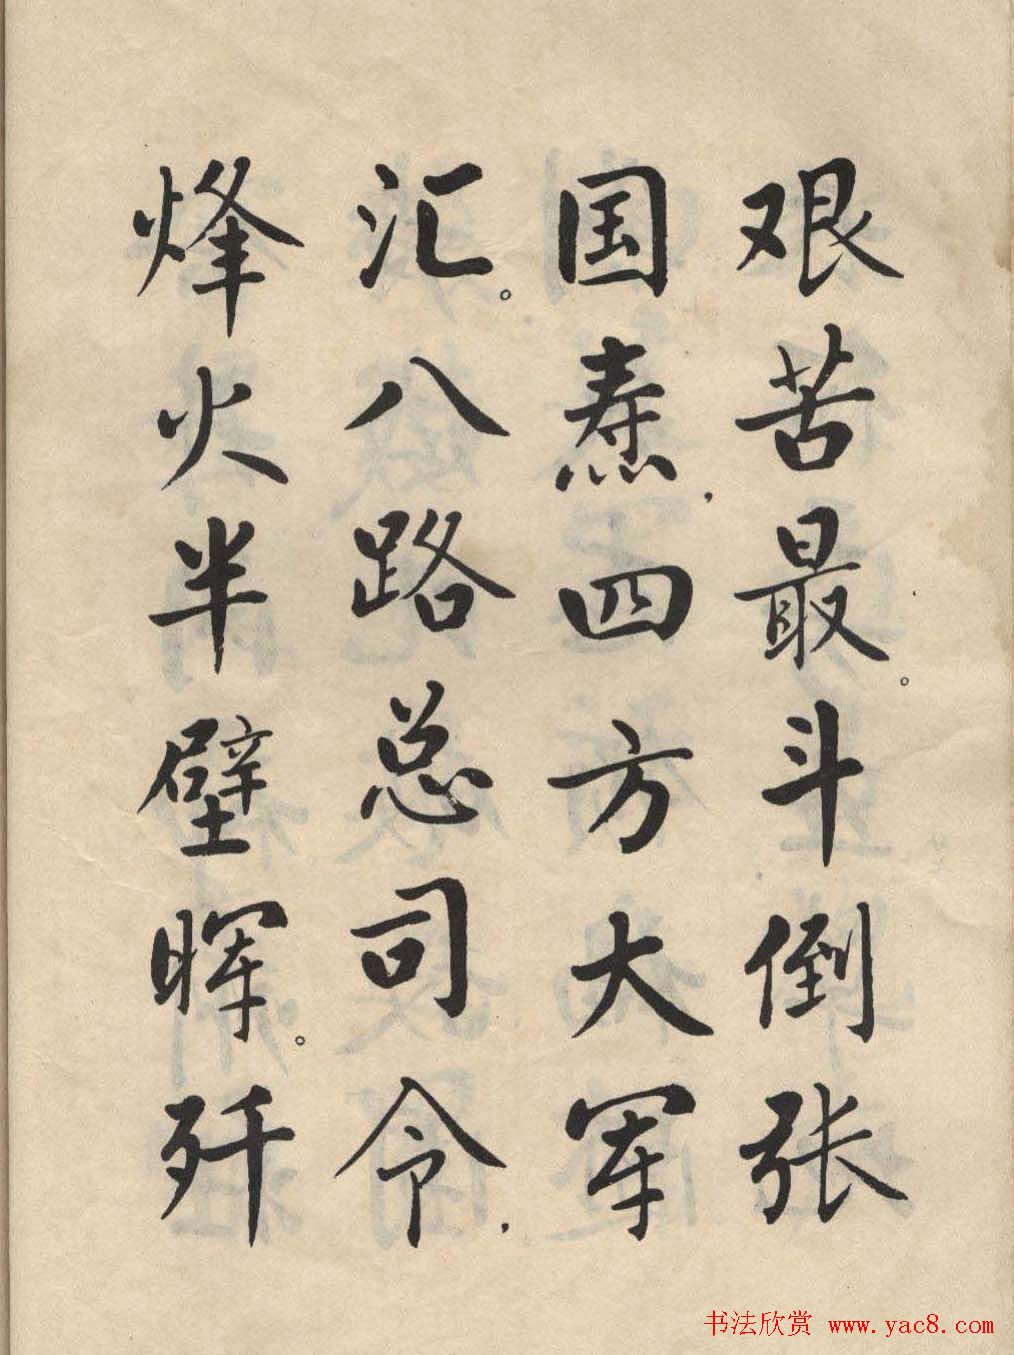 艰苦最。斗倒张
国焘，四方大军
汇。八路总司令，
烽火半壁晖。歼
书法欣赏 www.yac8.com